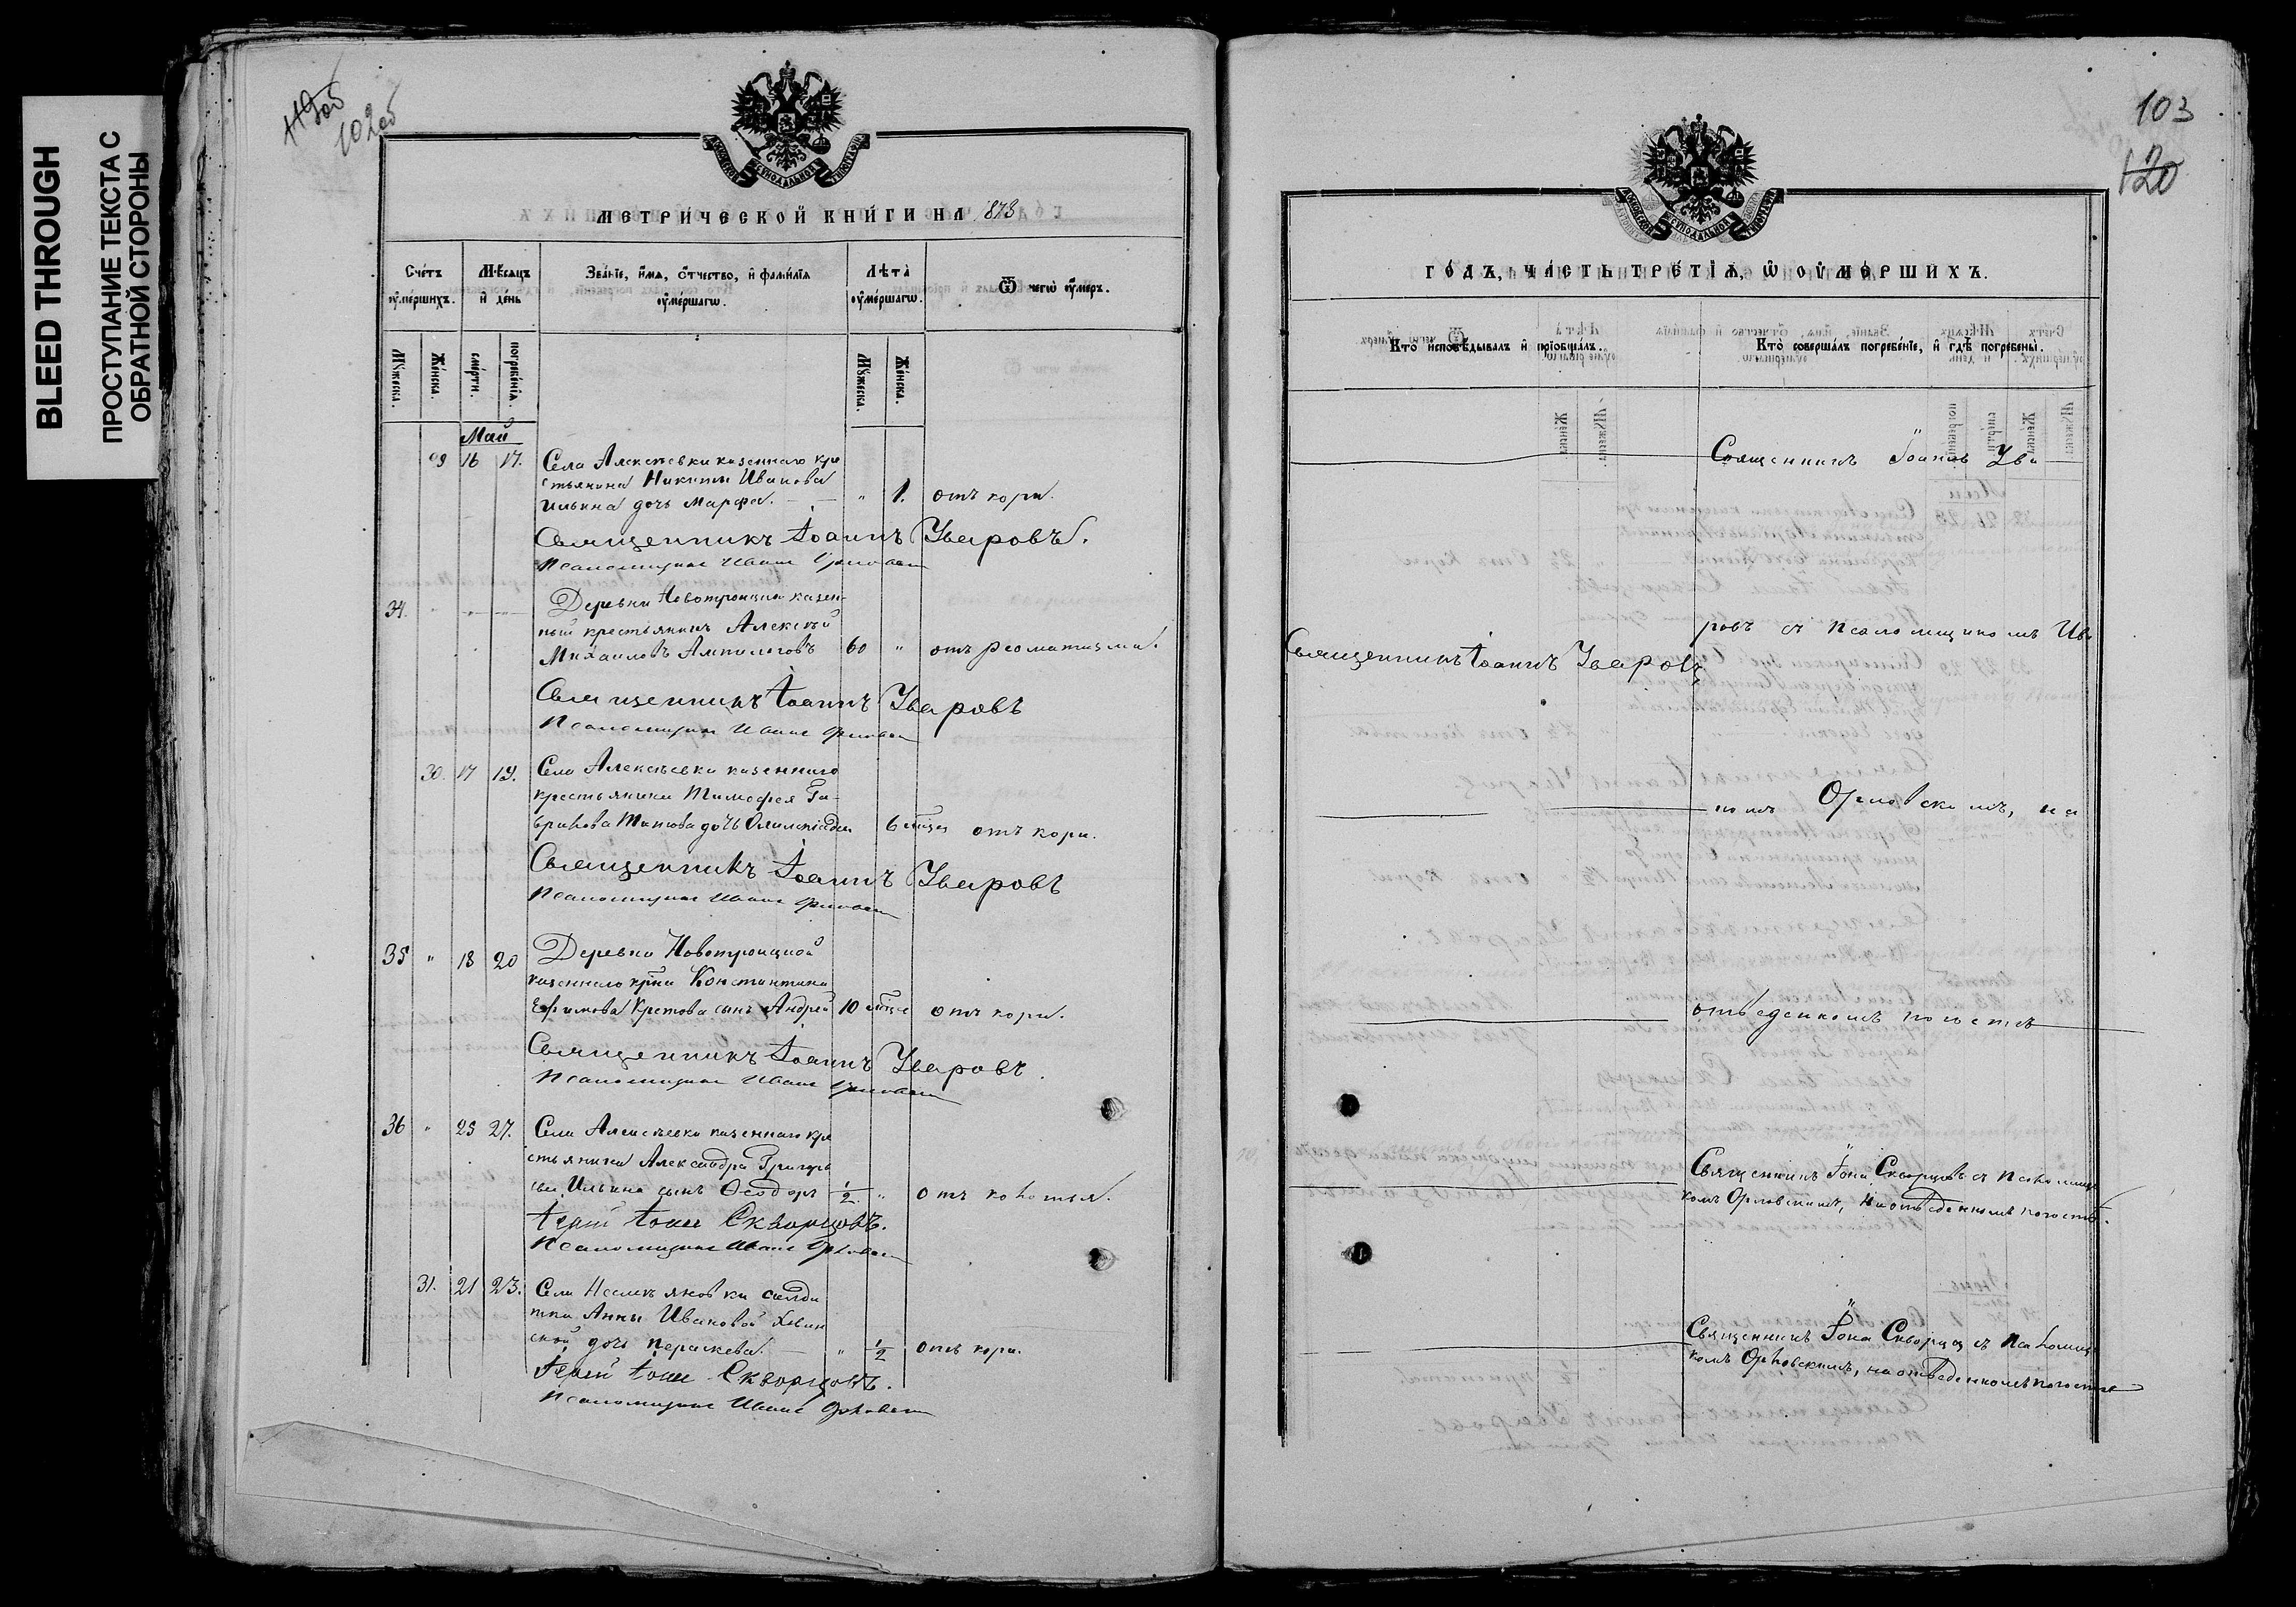 BLEED THROUGH
ПРОСТУПАНИЕ ТЕКСТА С
ОБРАТНОЙ СТОРОНЫ
102 об
МЕТРИЧЕСКОЙ КНИГИ НА 1873
Счетъ умершихъ.
Мѣсяцъ и день
Званіе, имя, отчество, и фамилія умершаго.
Лѣта умершаго.
Отъ чего умеръ.
Мужеска.
Женска.
смерти.
погребенія.
Мужеска.
Женска.
Май
29 16 17. Села Алексѣевки казеннаго кре
стьянина Никиты Иванова
Ильина дочь Марфа. " 1. отъ кори.
Священникъ Іоаннъ Уваровъ.
Псаломщикъ Иванъ Орловскій
34. " " " Деревни Новотроицкой казен-
ный крестьянинъ Алексѣй
Михаиловъ 60 " отъ ревматизма.
Священникъ Іоаннъ Уваровъ
Псаломщикъ Иванъ Орловскій
30. 17 19. Села Алексѣевки казеннаго
крестьянина Тимофея Га-
врилова Титова дочь 6 мѣся отъ кори.
Священникъ Іоаннъ Уваровъ
Псаломщикъ Иванъ Орловскій
35 " 18 20 Деревни Новотроицкой
казеннаго кр-на Константина
Ефимова Кретова сынъ Андрей 10 мѣся отъ кори.
Священникъ Іоаннъ Уваровъ.
Псаломщикъ Иванъ Орловскій
36 " 25 27. Села Алексѣевки казеннаго кре
стьянина Александра Григорь
ева Ильина сынъ Ѳеодоръ 1/2 " отъ
Іерей Іона Скворцовъ.
Псаломщикъ Иванъ Орловскій
31. 21 23. Села солдат
тки Анны Ивановой
ской дочь Параскева. " 1/2 отъ кори.
Іерей Іона Скворцовъ.
Псаломщикъ Иванъ Орловскій
103
120
ГОДЪ, ЧАСТЬ ТРЕТІЯ, О УМЕРШИХЪ.
Кто исповѣдывалъ и пріобщалъ.
Кто совершалъ погребеніе, и гдѣ погребены.
Священникъ Іоаннъ Ува
ровъ съ псаломщикомъ Ива
Священникъ Іоаннъ Уваровъ
номъ Орловскимъ, на
отведенномъ погостѣ
Священникъ Іона Скворцовъ съ псаломщи
комъ Орловскимъ, на отведенномъ погостѣ.
Священникъ Іона Скворцов съ псаломщи
комъ Орловскимъ, на отведенномъ погостѣ